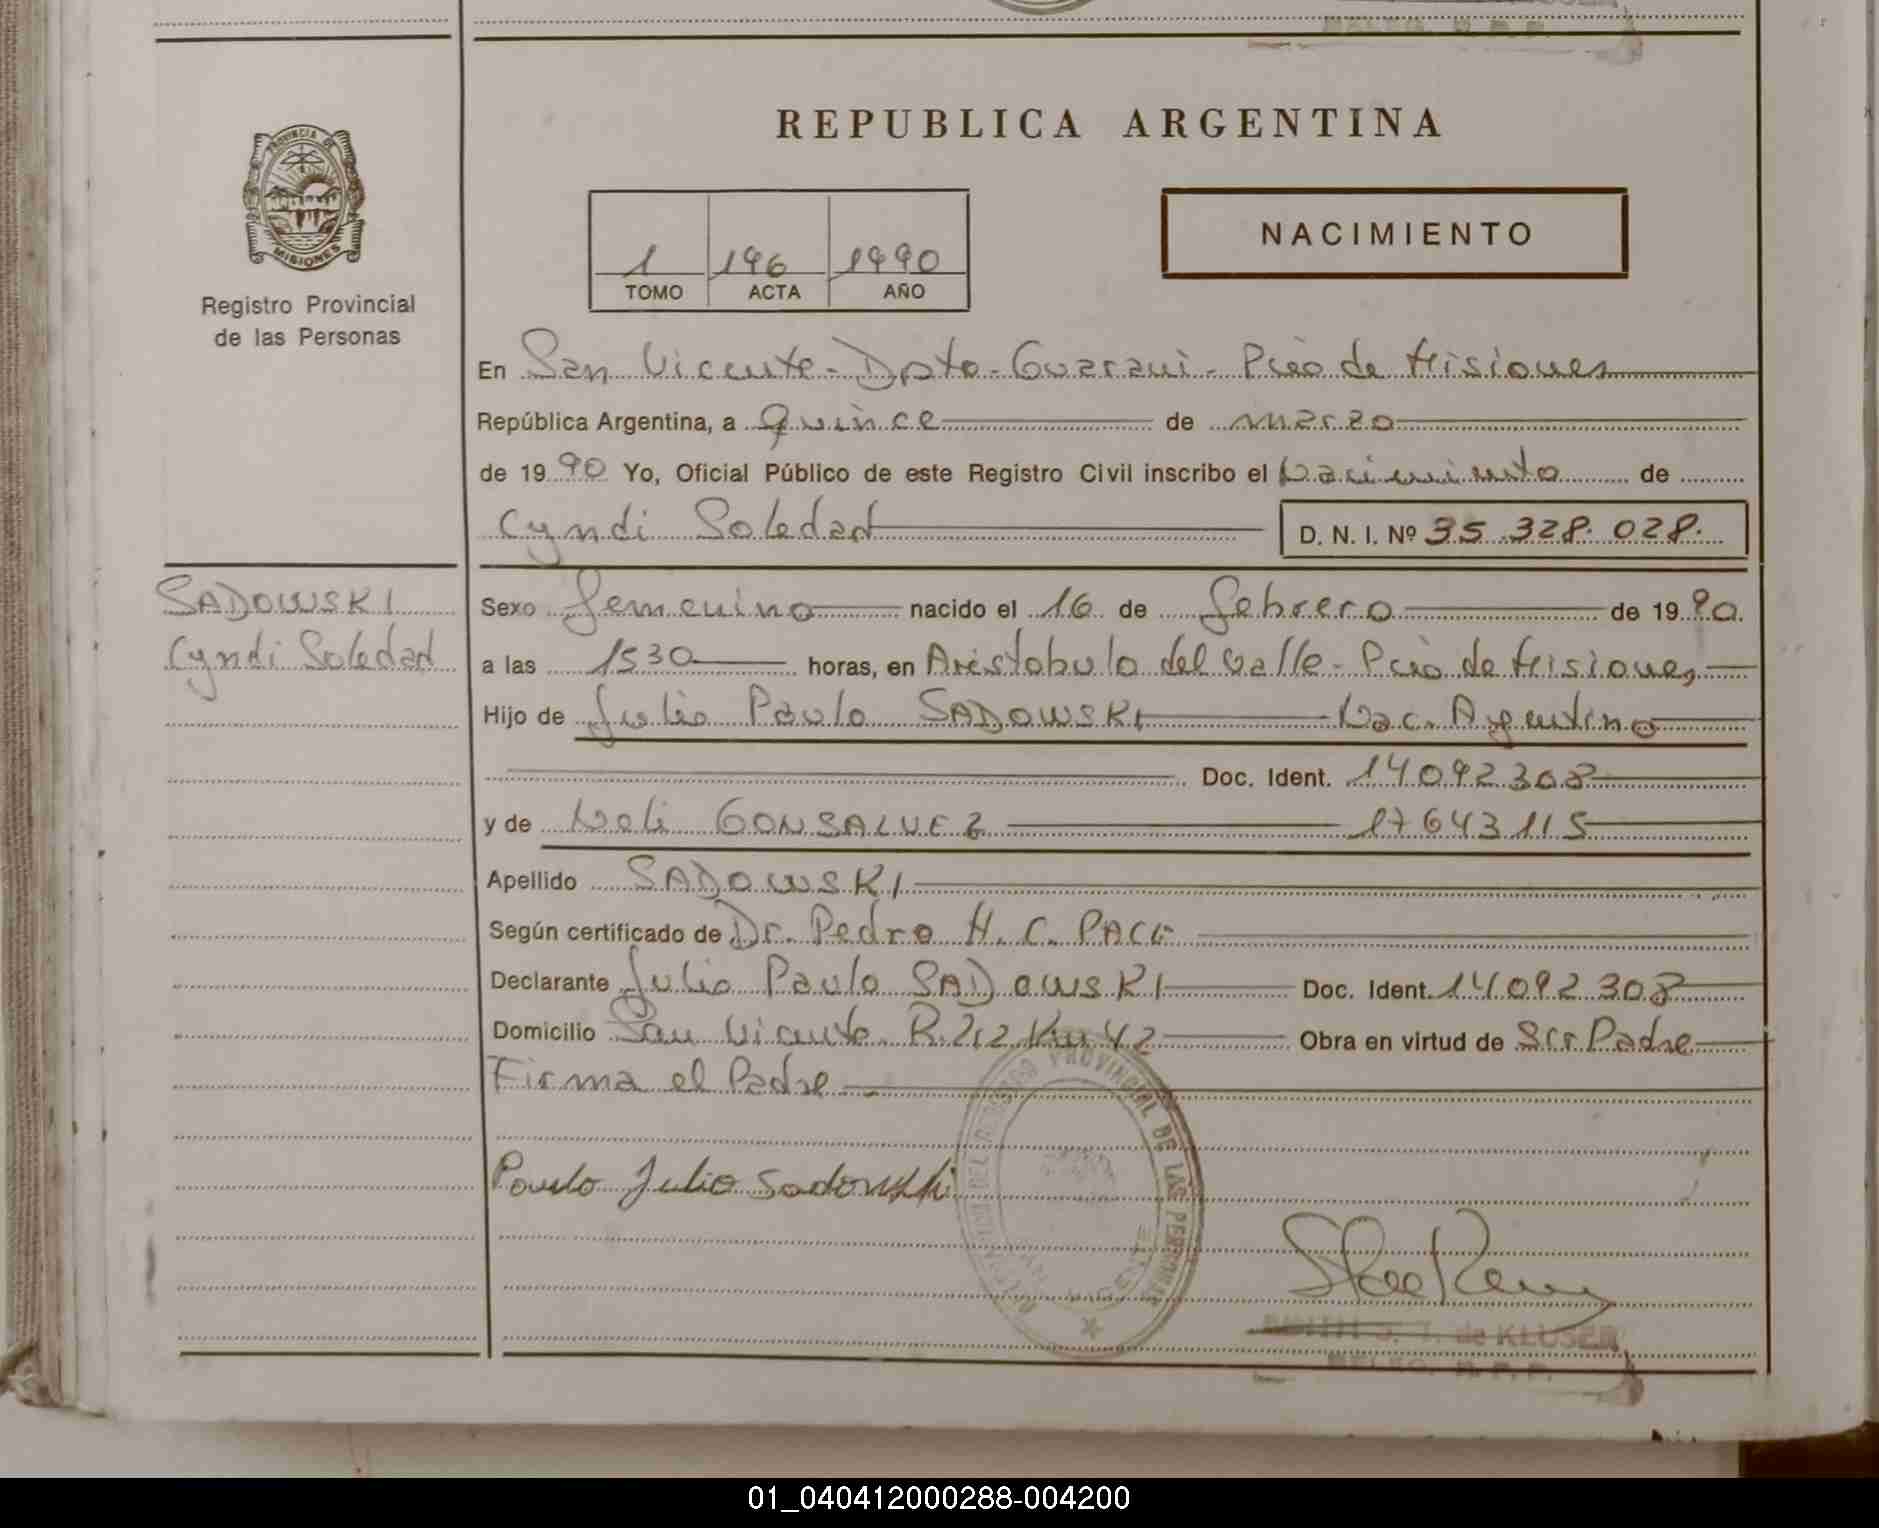 REPUBLICA ARGENTINA
PROVINCIA DE
MISIONES
Registro Provincial
de las Personas
1 196 1990
TOMO ACTA AÑO
NACIMIENTO
En San Vicente - Dpto - Guarani - Pcia de Misiones
República Argentina, a quince de marzo
de 1990 Yo, Oficial Público de este Registro Civil inscribo el Nacimiento de
Cyndi Soledad D. N. I. Nº 35.328.028.
SADOWSKI
Cyndi Soledad
Sexo femenino nacido el 16 de febrero de 1990.
a las 1530 horas, en Aristobulo del Valle - Pcia de Misiones
Hijo de Julio Paulo SADOWSKI Nac. Argentino
Doc. Ident. 14092308
y de Neli GONSALVEZ 17643115
Apellido SADOWSKI
Según certificado de Dr. Pedro H. C. PACE
Declarante Julio Paulo SADOWSKI Doc. Ident. 14092308
Domicilio San Vicente. R. 212 Km 42 Obra en virtud de Ser Padre
Firma el Padre
Paulo Julio Sadowski
PROVINCIAL DE LAS PERSONAS
VICENTE
de KLUSER
R. P. P.
01_040412000288-004200